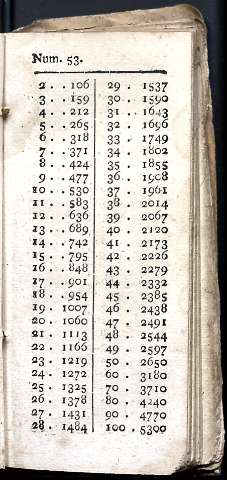 Num. 53.
2 . . 106
3 . . 159
4 . . 212
5 . . 265
6 . . 318
7 . . 371
8 . . 424
9 . . 477
10 . . 530
11 . . 583
12 . . 636
13 . . 689
14 . . 742
15 . . 795
16 . . 848
17 . . 901
18 . . 954
19 . 1007
20 . 1060
21 . 1113
22 . 1166
23 . 1219
24 . 1272
25 . 1325
26 . 1378
27 . 1431
28 . 1484
29 . 1537
30 . 1590
31 . 1643
32 . 1696
33 . 1749
34 . 1802
35 . 1855
36 . 1908
37 . 1961
38 . 2014
39 . 2067
40 . 2120
41 . 2173
42 . 2226
43 . 2279
44 . 2332
45 . 2385
46 . 2438
47 . 2491
48 . 2544
49 . 2597
50 . 2650
60 . 3180
70 . 3710
80 . 4240
90 . 4770
100 . 5300